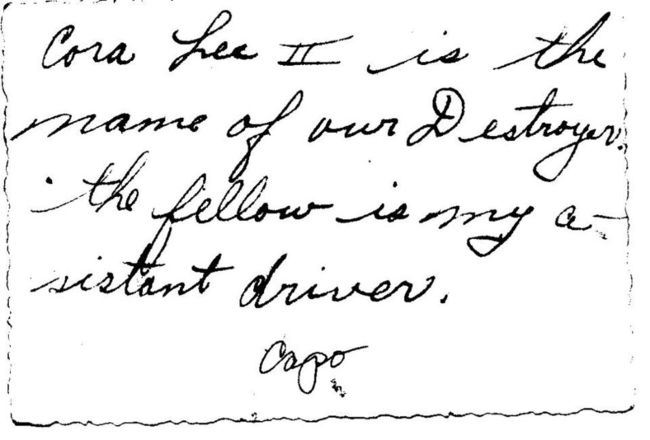 Cora Lee II is the
name of our Destroyer.
the fellow is my a-
sistant driver.
Capo